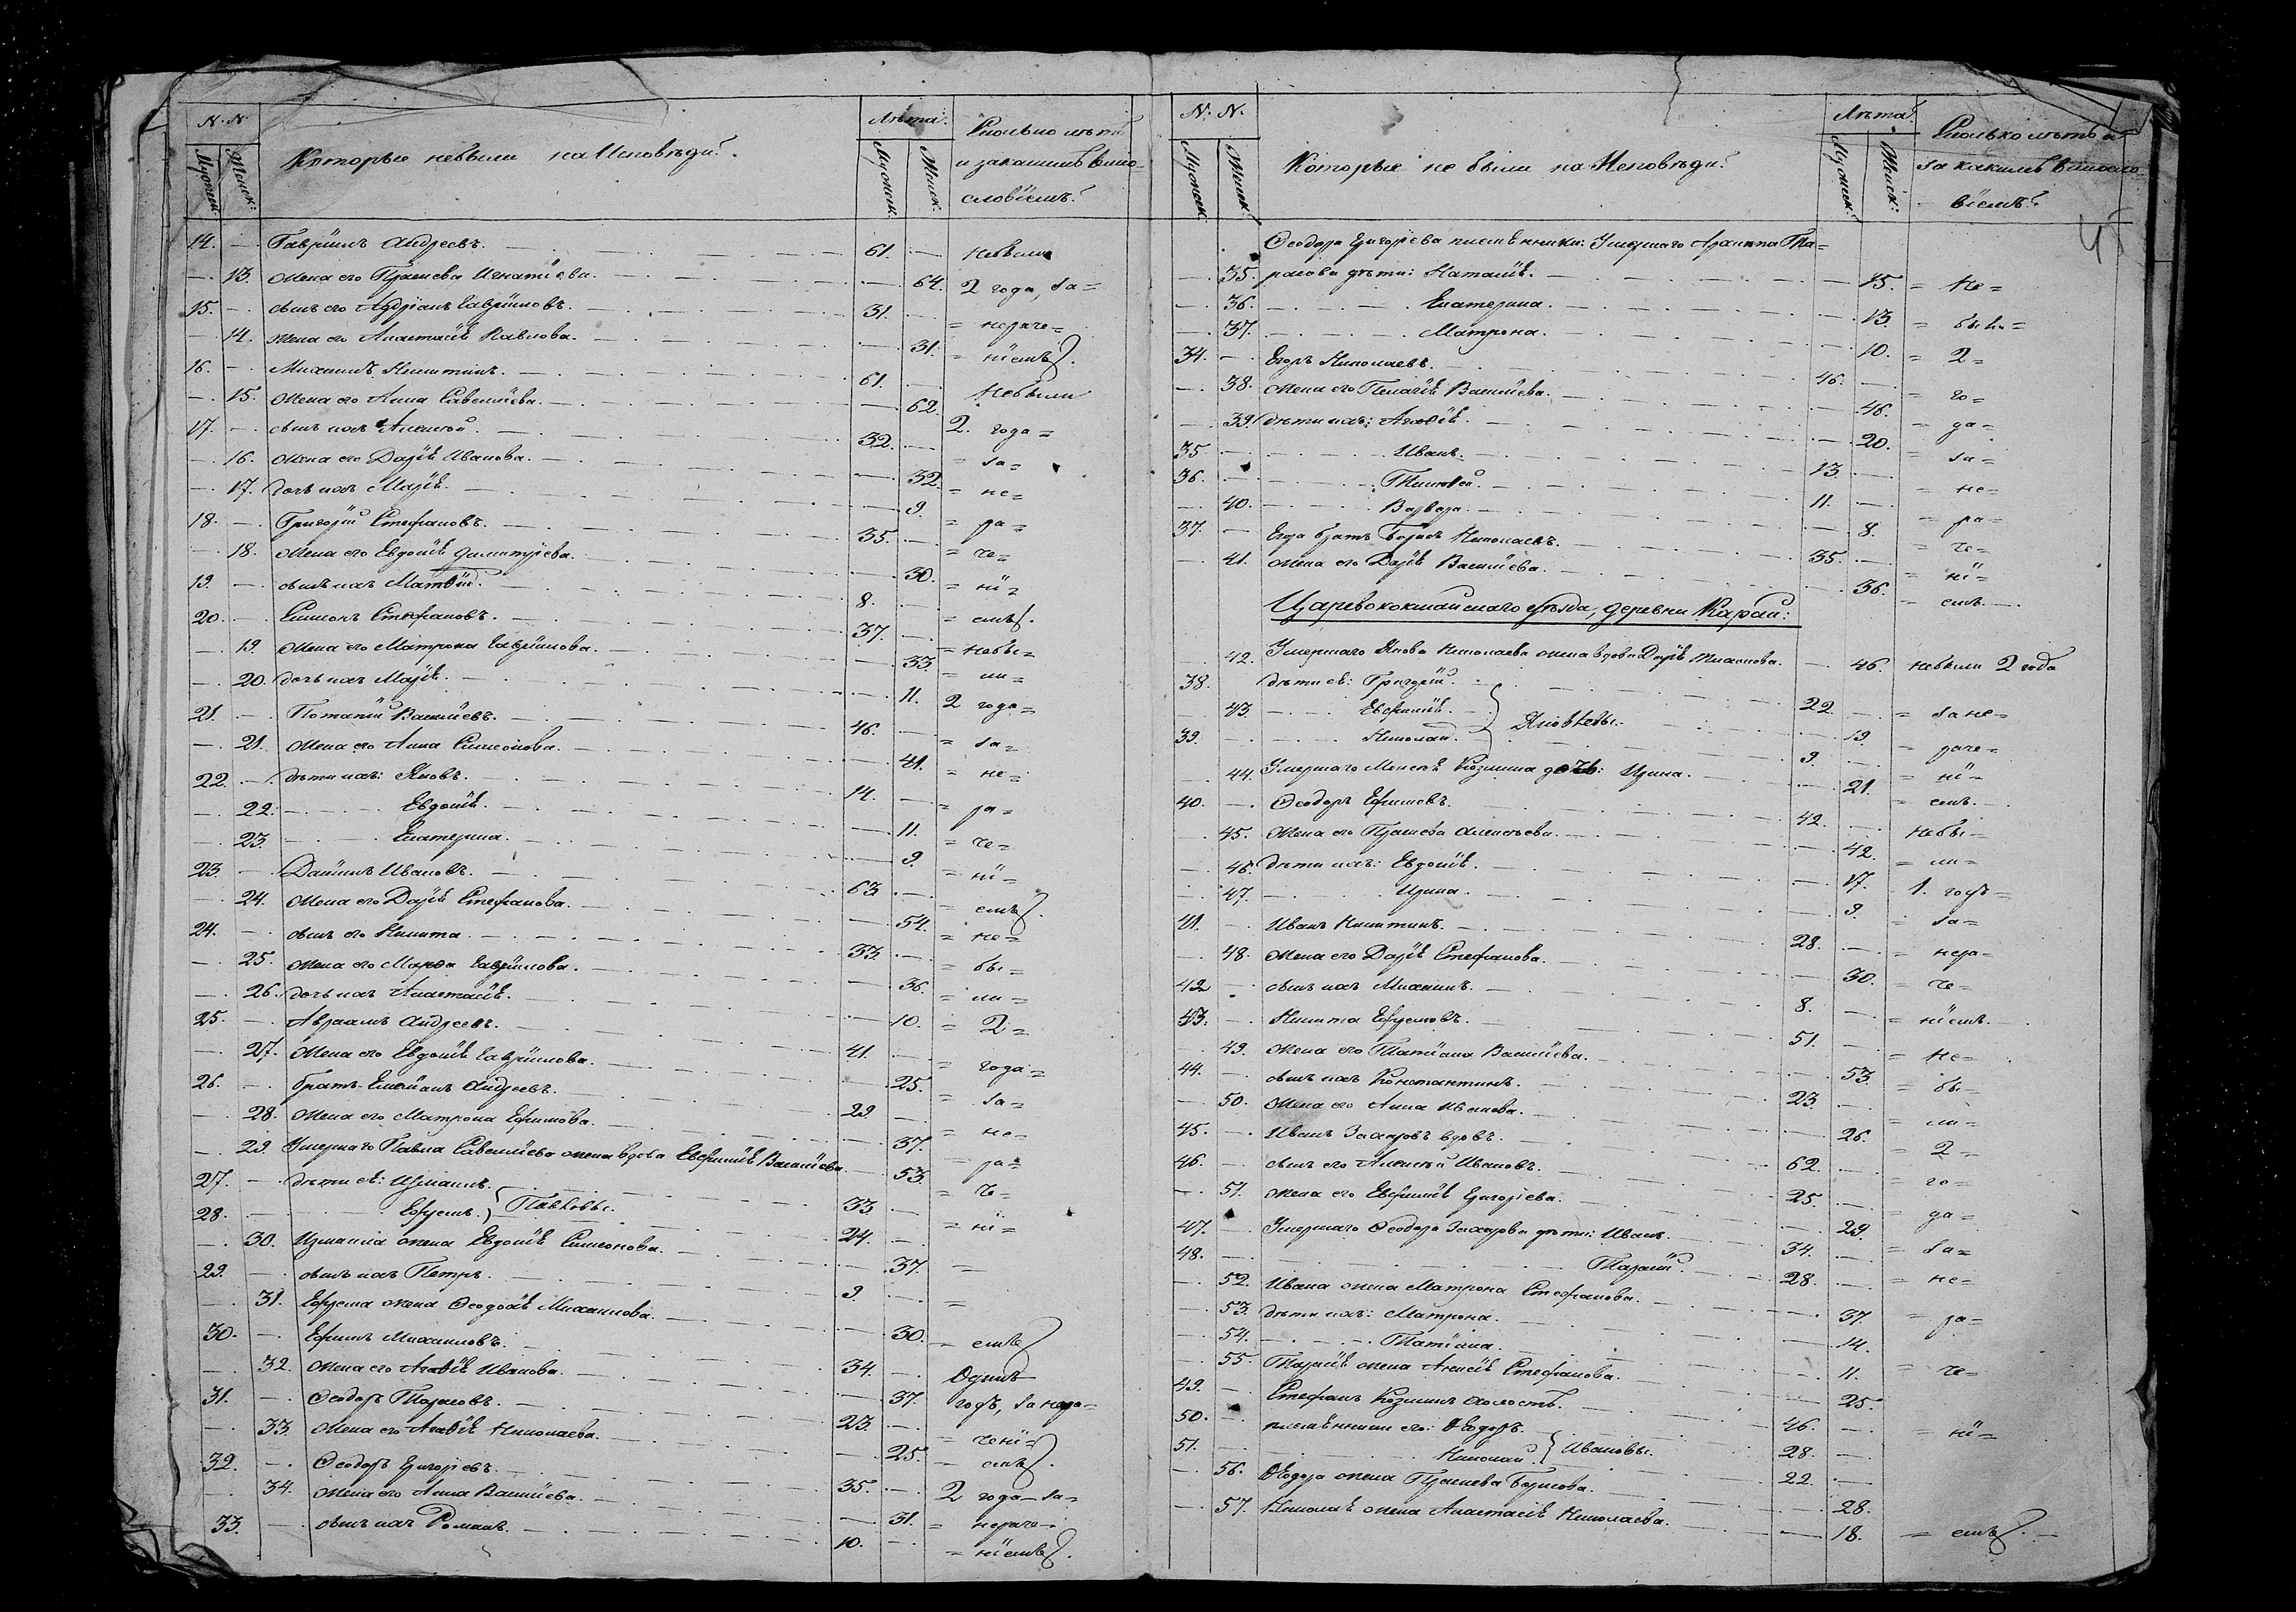 N. N.
Лѣта.
Сколько лѣтъ
Мужеск:
Женск:
Которые небыли на Исповѣди?
Мужеск.
Женск.
и закакимъ винo-
словіемъ?
14. — Гавріилъ Андреевъ. 61. — небыли
— 13. жена его Праскева Игнатіева. — 64. 2 года, за=
15. — сынъ его Андріанъ Гавріиловъ. 31. — = нераче=
— 14. жена его Анастасія Павлова. — 31. = ніемъ.
16. — Михаилъ Никитинъ. 61. — Небыли
— 15. жена его Анна Савельева. — 62. 2. года=
17. — сынъ ихъ Алексѣй. 32. — = за=
— 16. жена его Дарія Иванова. — 32. = не=
— 17. дочь ихъ Марія. — 9. = ра=
18. — Григорій Стефановъ. 35. — = че=
— 18. жена его Евдокія Димитріева. — 30. = ні=
19. — сынъ ихъ Матвій. 8. — = емъ.
20. — Симеонъ Стефановъ. 37. — = небы=
— 19. жена его Матрона Гавріилова. — 33. = ли=
— 20. дочь ихъ Марія. — 11. 2 года=
21. — Потапій Васильевъ. 46. — = за=
— 21. жена его Анна Симеонова. — 41. = не=
22. — дѣти ихъ: Яковъ. 14. — = ра=
— 22. Евдокія. — 11. = че=
— 23. Екатерина. — 9. = ні=
23. — Даніилъ Ивановъ. 63. — = емъ.
— 24. жена его Дарія Стефанова. — 54. = не=
24. — сынъ его Никита. 33. — = бы=
— 25. жена его Марѳа Гавріилова. — 36. = ли=
— 26. дочь ихъ Анастасія. — 10. = 2=
25. — Авраамъ Андреевъ. 41. — = года=
— 27. жена его Евдокія Гавріилова. — 25. = за=
26. — братъ Емеліанъ Андреевъ. 29. — = не=
— 28. жена его Матрона Ефимова. — 37. = ра=
— 29. Умершаго Павла Савельева жена вдова Евфимія Васильева — 53. = че=
27. — дѣти ея: Измаилъ. 33. — = ні=
28. — Ефремъ. } Павловы. 24. —
— 30. Измаила жена Евдокія Симеонова. — 37. =
29. — сынъ ихъ Петръ. 9. — =
— 31. Ефрема жена Ѳеодосія Михаилова. — 30. = емъ
30. — Ефимъ Михаиловъ. 34. — Одинъ
— 32. жена его Агаѳія Иванова. — 37. годъ, за нера=
31. — Ѳеодоръ Тарасовъ. 23. — = чені=
— 33. жена его Агаѳія Николаева. — 25. = емъ.
32. — Ѳеодоръ Григорьевъ. 35. — 2 года за=
— 34. жена его Анна Васильева. — 31. = нераче=
33. — сынъ ихъ Романъ. 10. — = ніемъ.
N. N.
Лѣта.
Сколько лѣтъ и
Мужеск:
Женск:
Которые не были на Исповѣди?
Мужеск:
Женск:
за какимъ винoсло=
віемъ?
45
Ѳеодора Григорьева племянники: Умершаго Архиппа Та=
— 35. расова дѣти: Наталія. — 15. = не=
— 36. Екатерина. — 13. = были=
— 37. Матрона. — 10. = 2=
34. — Егоръ Николаевъ. 46. — = го=
— 38. жена его Пелагія Васильева. — 46. = да=
— 39. дѣти ихъ: Агаѳія. — 20. = за=
35. — Иванъ. 13. — = не=
36. — Тимоѳей. 11. — = ра=
— 40. Варвара. — 8. = че=
37. — Егора братъ Борисъ Николаевъ. 35. — = ні=
— 41. жена его Дарія Васильева. — 36. = емъ.
Царевококшайскаго уѣзда, деревни Караи:
— 42. Умершаго Якова Николаева жена вдова Дарія — 46. небыли 2 года
38. — дѣти ея: Григорій. 22. — = зане=
— 43. Евфимія. } Яковлевы. — 19. = раче=
39. — Николай. 9. — = ні=
— 44. Умершаго Козмина дочь: Ирина. — 21. = емъ.
40. — Ѳеодоръ Ефимовъ. 42. — небы=
— 45. жена его Праскева Алексѣева. — 42. = ли=
— 46. дѣти ихъ: Евдокія. — 17. 1. годъ=
— 47. Ирина. — 9. = за=
41. — Иванъ Никитинъ. 28. — = нера=
— 48. жена его Дарія Стефанова. — 30. = че=
42. — сынъ ихъ Михаилъ. 8. — = ніемъ.
43. — Никита Ефремовъ. 51. — = не=
— 49. жена его Татіана Васильева. — 53. = бы=
44. — сынъ ихъ Константинъ. 23. — = ли=
— 50. жена его Анна Иванова. — 26. = 2=
45. — Иванъ Захаровъ вдовъ. 62. — = го=
46. — сынъ его Алексѣй Ивановъ. 25. — = да=
— 51. жена его Евфимія Григорьева. — 29. = за=
47. — Умершаго Ѳеодора Захарова дѣти: Иванъ. 34. — = не=
48. — Тарасій. 28. —
— 52. Ивана жена Матрона Стефанова. — 37. = ра=
— 53. дѣти ихъ: Матрона. — 14.
— 54. Татіана. — 11. = че=
— 55. Тарасія жена Стефанова. — 25.
49. — Стефанъ Козминъ холостъ. 46. — = ні=
50. — племянники его: Ѳеодоръ. 28. —
51. — Николай. } Ивановы. 22. —
— 56. Ѳеодора жена Праскева Борисова. — 28.
— 57. Николая жена Анастасія Николаева. — 18. = емъ.